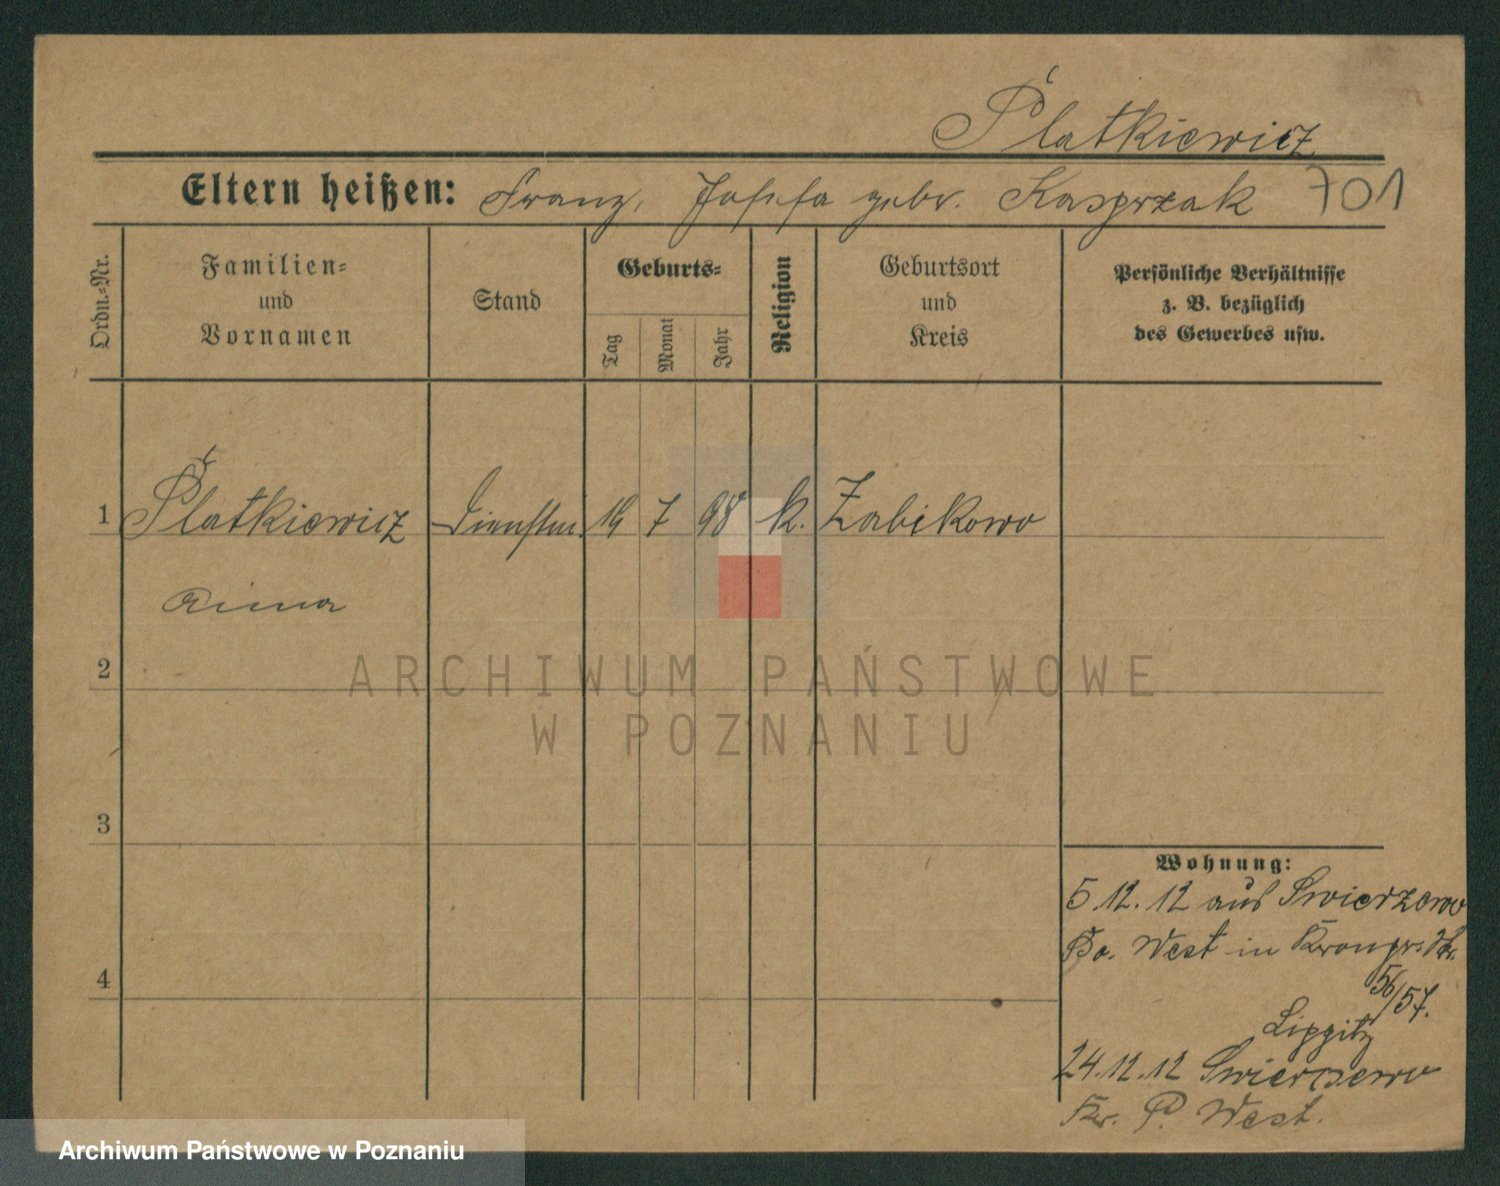 Płatkiewicz
Eltern heißen: Franz, Josefa gebr. Kasprzak 701
Ordn.-Nr.
Familien-
und
Vornamen
Stand
Geburts-
Tag
Monat
Jahr
Religion
Geburtsort
und
Kreis
Persönliche Verhältnisse
z. B. bezüglich
des Gewerbes usw.
1 Płatkiewicz Dienstm. 19 7 98 k. Zabikowo
Anna
2
ARCHIWUM PAŃSTWOWE
W POZNANIU
3
4
Wohnung:
5.12.12 aus Swierzewo
Po. West in Kronpr. Str.
56/57.
Lippitz
24.12.12 Swierczewo
Kr. P. West.
Archiwum Państwowe w Poznaniu